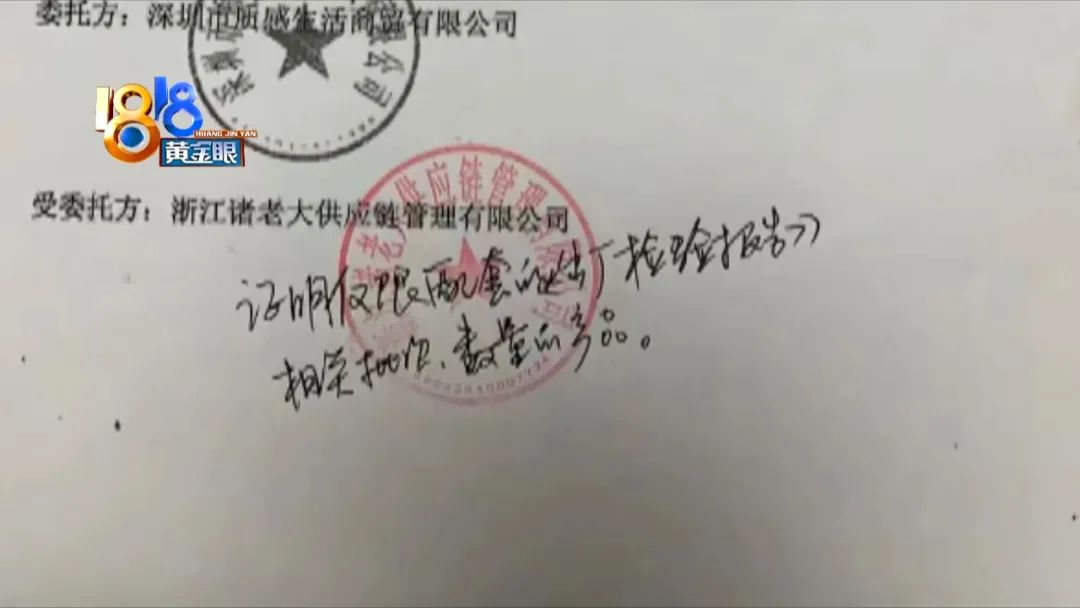 委托方：深圳市质感生活商贸有限公司
1818
HUANG JIN YAN
黄金眼
受委托方：浙江诸老大供应链管理有限公司
供应链管理有限公司
证明仅限配套的出厂检验报告>>
相关批次、数量的产品。